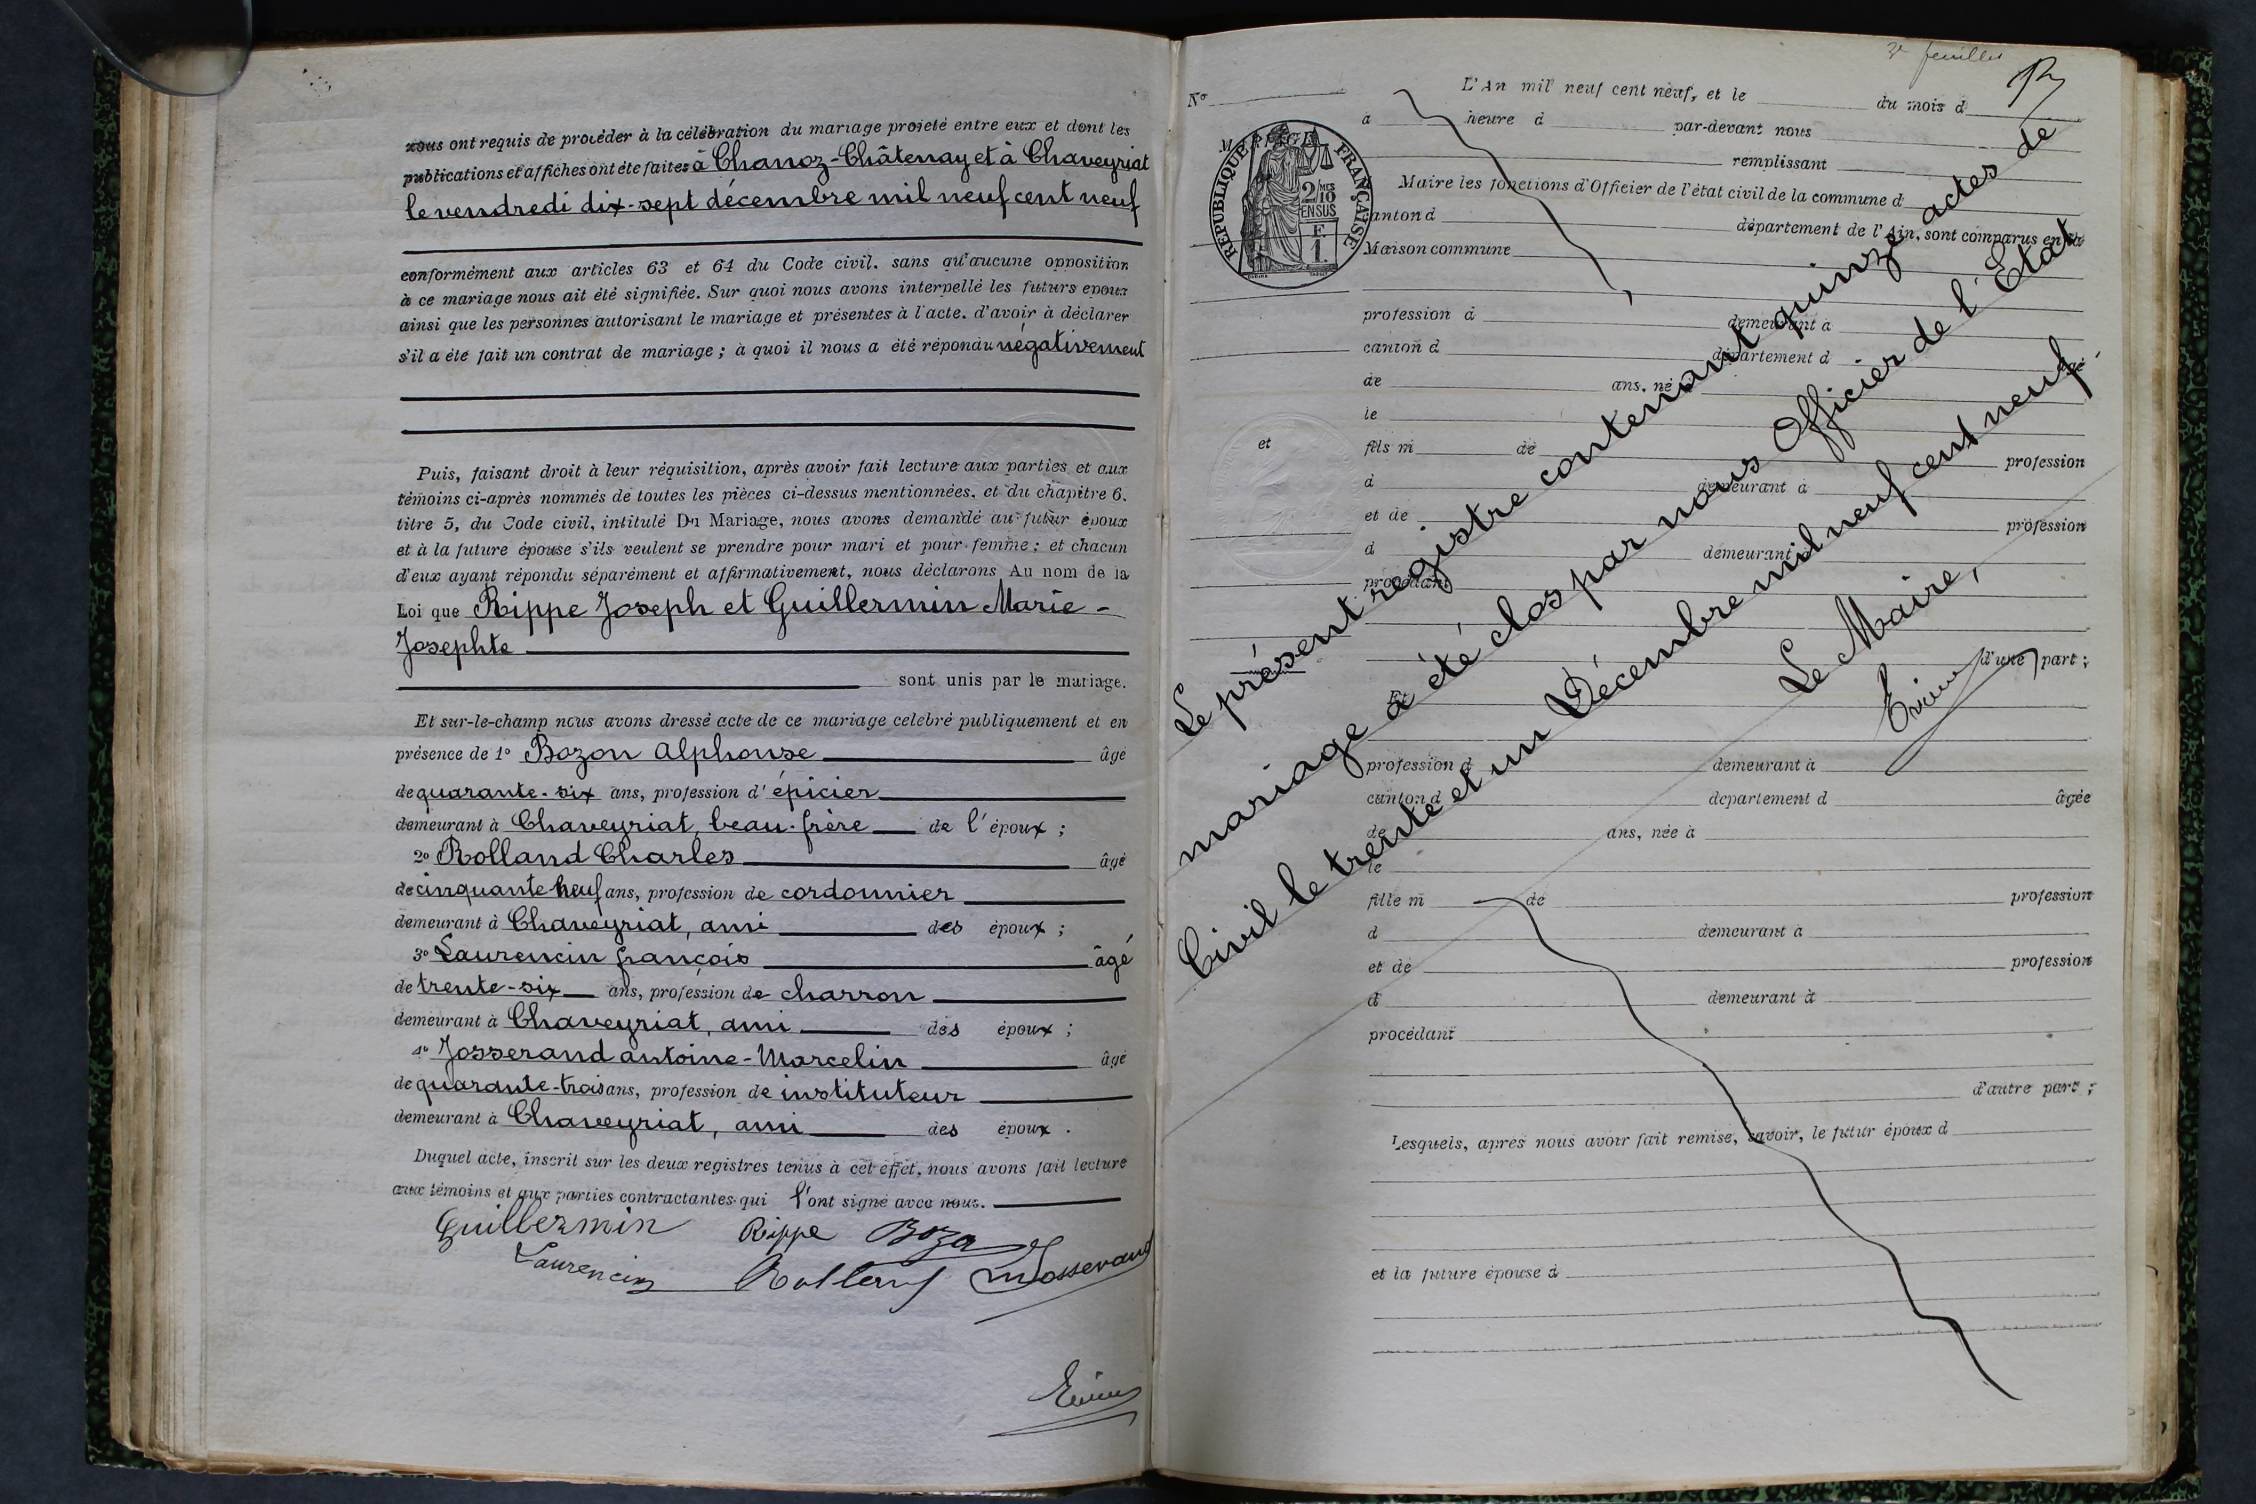 nous ont requis de procéder à la célébration du mariage projeté entre eux et dont les
publications et affiches ont été faites à Chanoz-Châtenay et à Chaveyriat
le vendredi dix-sept décembre mil neuf cent neuf
conformément aux articles 63 et 64 du Code civil. sans qu'aucune opposition
à ce mariage nous ait été signifiée. Sur quoi nous avons interpellé les futurs epoux
ainsi que les personnes autorisant le mariage et présentes à l'acte. d'avoir à déclarer
s'il a été fait un contrat de mariage ; à quoi il nous a été répondu négativement
Puis, faisant droit à leur réquisition, après avoir fait lecture aux parties et aux
témoins ci-après nommés de toutes les pièces ci-dessus mentionnées. et du chapitre 6.
titre 5, du Code civil, intitulé Du Mariage, nous avons demandé au futur époux
et à la future épouse s'ils veulent se prendre pour mari et pour femme ; et chacun
d'eux ayant répondu séparément et affirmativement, nous déclarons Au nom de la
Loi que Rippe Joseph et Guillermin Marie -
Josephte
sont unis par le mariage.
Et sur-le-champ nous avons dressé acte de ce mariage celebré publiquement et en
présence de 1° Bozon Alphonse âgé
de quarante-six ans, profession d'épicier
demeurant à Chaveyriat, beau-frère de l'époux ;
2° Rolland Charles âgé
de cinquante neuf ans, profession de cordonnier
demeurant à Chaveyriat, ami des époux ;
3° Laurencin françois âgé
de trente-six ans, profession de charron
demeurant à Chaveyriat, ami des époux ;
4° Josserand antoine-Marcelin âgé
de quarante-trois ans, profession de instituteur
demeurant à Chaveyriat, ami des époux.
Duquel acte, inscrit sur les deux registres tenus à cet effet, nous avons fait lecture
aux témoins et aux parties contractantes qui l'ont signé avec nous.
Guillermin Rippe Bozon
Laurencin Rolland Josserand
3e feuillet
N°
L'An mil neuf cent neuf, et le du mois d
à heure d par-devant nous
MARIAGE
RÉPUBLIQUE FRANÇAISE
2/10 MES
EN SUS
F
1.
remplissant
Maire les fonctions d'Officier de l'état civil de la commune d
canton d département de l'Ain, sont comparus en la
Maison commune
profession d demeurant à
canton d département d âgé
de ans, né à
le
et
fils m de profession
d demeurant à
et de profession
d demeurant à
procédant
d'une part ;
Et
profession d demeurant à
canton d département d âgée
de ans, née à
le
fille m de profession
d demeurant à
et de profession
d demeurant à
procédant
d'autre part ;
Lesquels, après nous avoir fait remise, savoir, le futur époux d
et la future épouse d
Le présent registre contenant quinze actes de
mariage a été clos par nous Officier de l'Etat
Civil le trente et un Décembre mil neuf cent neuf
Le Maire,